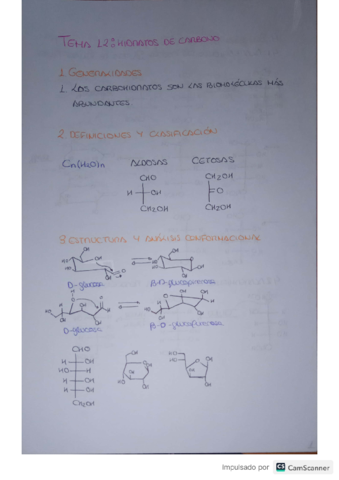 TEMA 12: HIDRATOS DE CARBONO
1. GENERALIDADES
1. LOS CARBOHIDRATOS SON LAS BIOMOLÉCULAS MÁS
ABUNDANTES.
2. DEFINICIONES Y CLASIFICACIÓN
Cn(H2O)n ALDOSAS CETOSAS
CHO CH2OH
H OH =O
CH2OH CH2OH
3. ESTRUCTURA Y ANÁLISIS CONFORMACIONAL
D-glucosa β-D-glucopiranosa
D-glucosa β-D-glucofuranosa
CHO
H OH
HO H
H OH
H OH
CH2OH
Impulsado por CS CamScanner